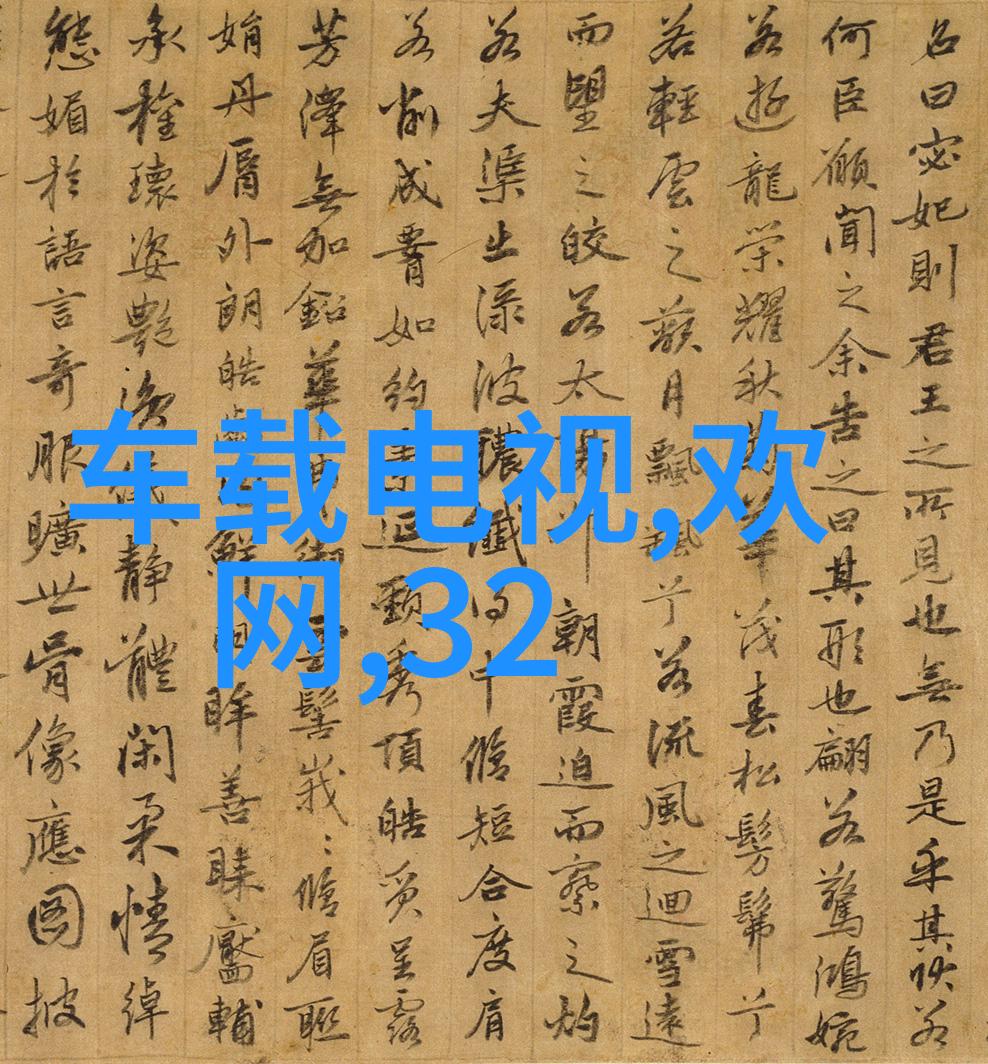 名曰宓妃則君王之所見也無乃是乎其狀若
何臣願聞之余告之曰其形也翩若驚鴻婉
若遊龍榮耀秋菊華茂春松髣髴兮
若輕雲之蔽月飄颻兮若流風之迴雪遠
而望之皎若太陽升朝霞迫而察之灼
若夫渠出渌波穠纖得中脩短合度肩
若削成腰如約素延頸秀項皓質呈露
芳澤無加鉛華弗御雲髻峩〻脩眉聯
娟丹脣外朗皓齒內鮮明眸善睞靨輔
承權瓌姿艷逸儀靜體閑柔情綽
態媚於語言奇服曠世骨像應圖披
车载电视,欢
网,32